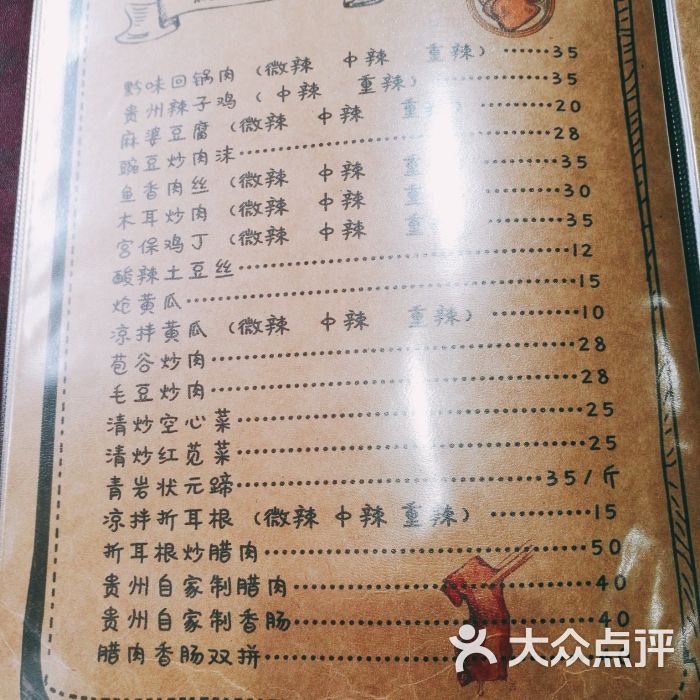 黔味回锅肉（微辣 中辣 重辣）……35
贵州辣子鸡（中辣 重辣）……35
麻婆豆腐（微辣 中辣 重辣）……20
豌豆炒肉沫……28
鱼香肉丝（微辣 中辣 重辣）……35
木耳炒肉（微辣 中辣 重辣）……30
宫保鸡丁（微辣 中辣 重辣）……35
酸辣土豆丝……12
炝黄瓜……15
凉拌黄瓜（微辣 中辣 重辣）……10
苞谷炒肉……28
毛豆炒肉……28
清炒空心菜……25
清炒红苋菜……25
青岩状元蹄……35/斤
凉拌折耳根（微辣 中辣 重辣）……15
折耳根炒腊肉……50
贵州自家制腊肉……40
贵州自家制香肠……40
腊肉香肠双拼……
大众点评